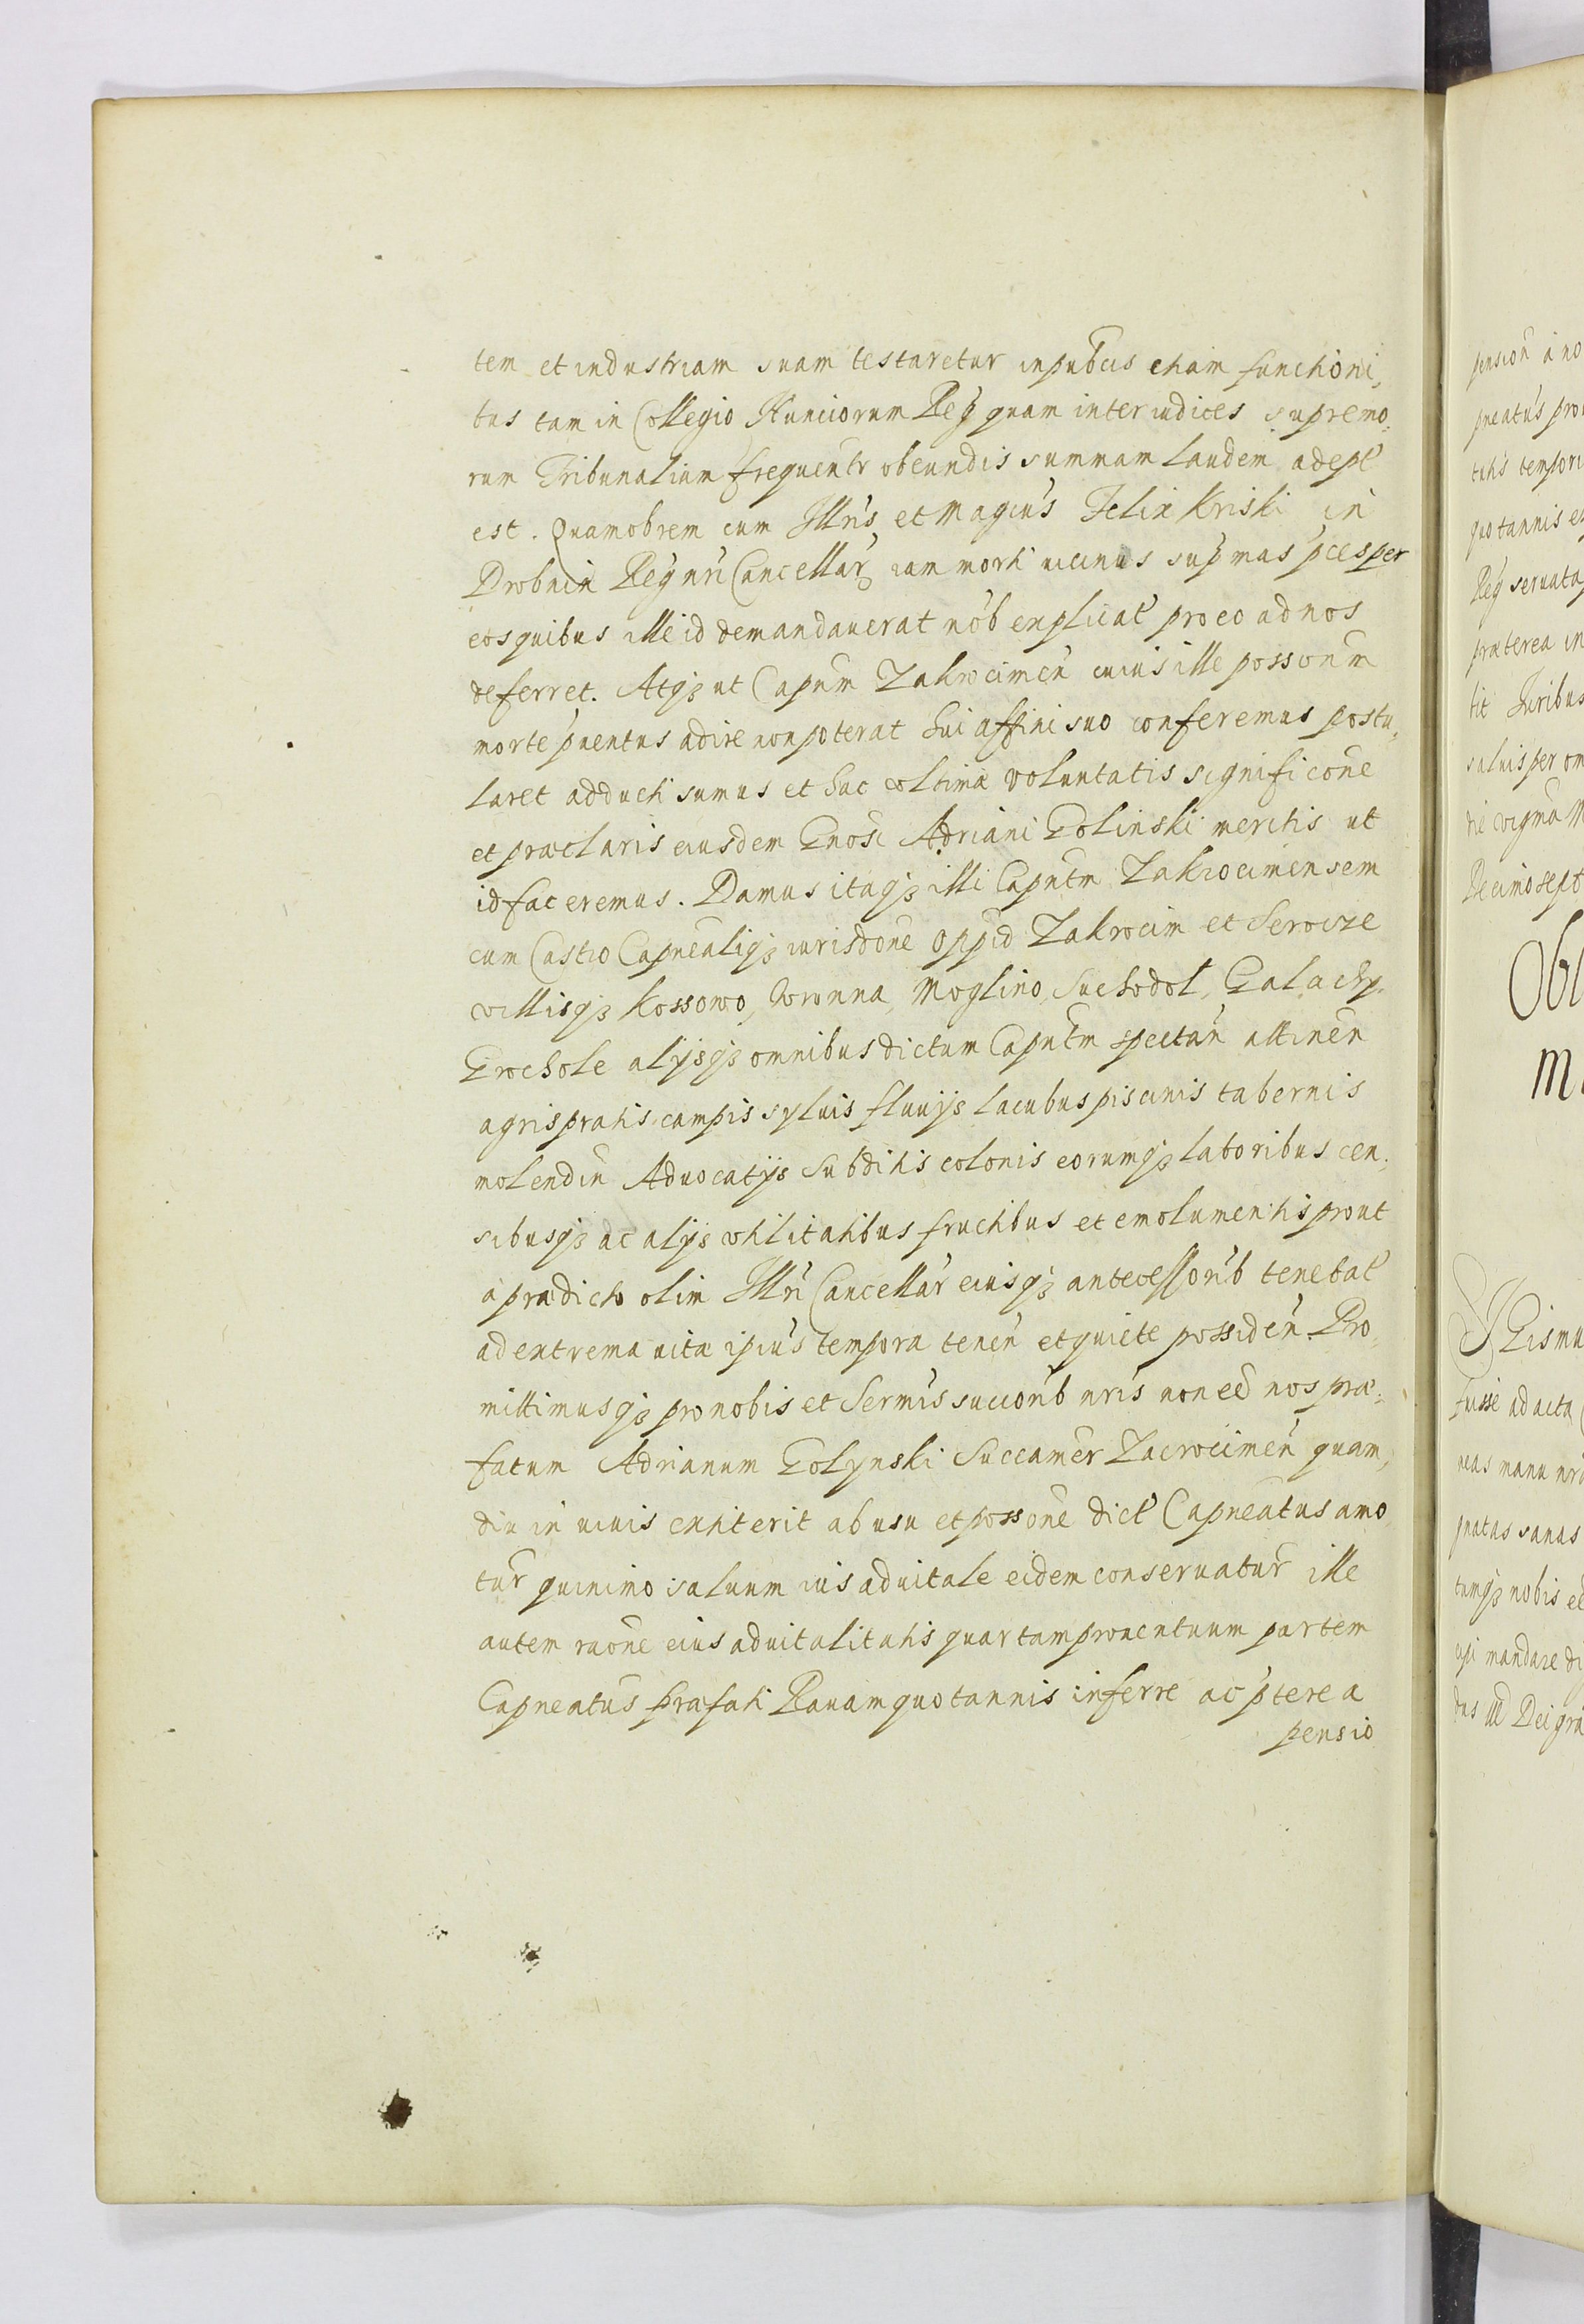 tem et industriam suam testaretur in pubcis etiam functioni,
bus tam in Collegio Nunciorum Reg quam inter iudices supremo,
rum Tribunalium frequentr obeundis summam laudem adept
est. Quamobrem cum Illris et Magcus Felix Kriski in
Drobnin Reg nri Cancellar iam morti vicinus supmas pces per
eos quibus ille id demandauerat nob explicat pro eo ad nos
deferret. Atqz ut Capnm Zakrocimen cuius ille possonm
morte puentus adire non poterat hui affini suo conferemus postu,
laret adducti sumus et hac vltima voluntatis significone
et præclaris eiusdem Gnosi Adriani Golinski meritis ut
id faceremus. Damus itaqz illi Capntm Zakrocimensem
cum Castro Capnealiqz iurisdone Oppid Zakrocim et Serocze
villisqz Kossowo, Wronna, Moglino, Suchodol, Galachy
Grochole alijsqz omnibus dictum Capntm spectan attinen
agris pratis campis syluis fluuijs lacubus piscinis tabernis
molendin Aduocatijs Subditis colonis eorumqz laboribus cen,
sibusqz ac alijs vtilitatibus fructibus et emolumentis prout
à prædicto olim Illri Cancellar eiusqz antecessorib tenebat
ad extrema vitæ ipius tempora tenen et quiete possiden. Pro,
mittimusqz pro nobis et Sermis succorib nris non eê nos præ,
fatum Adrianum Golynski Succamer Zacrocimen quam,
diu in viuis extiterit ab usu et possone dict Capneatus amo
tur quinimo saluum ius aduitale eidem conseruatur ille
autem raone eius aduitalitatis quartam prouentuum partem
Capneatus præfati Rauam quotannis inferre ac pterea
pensio